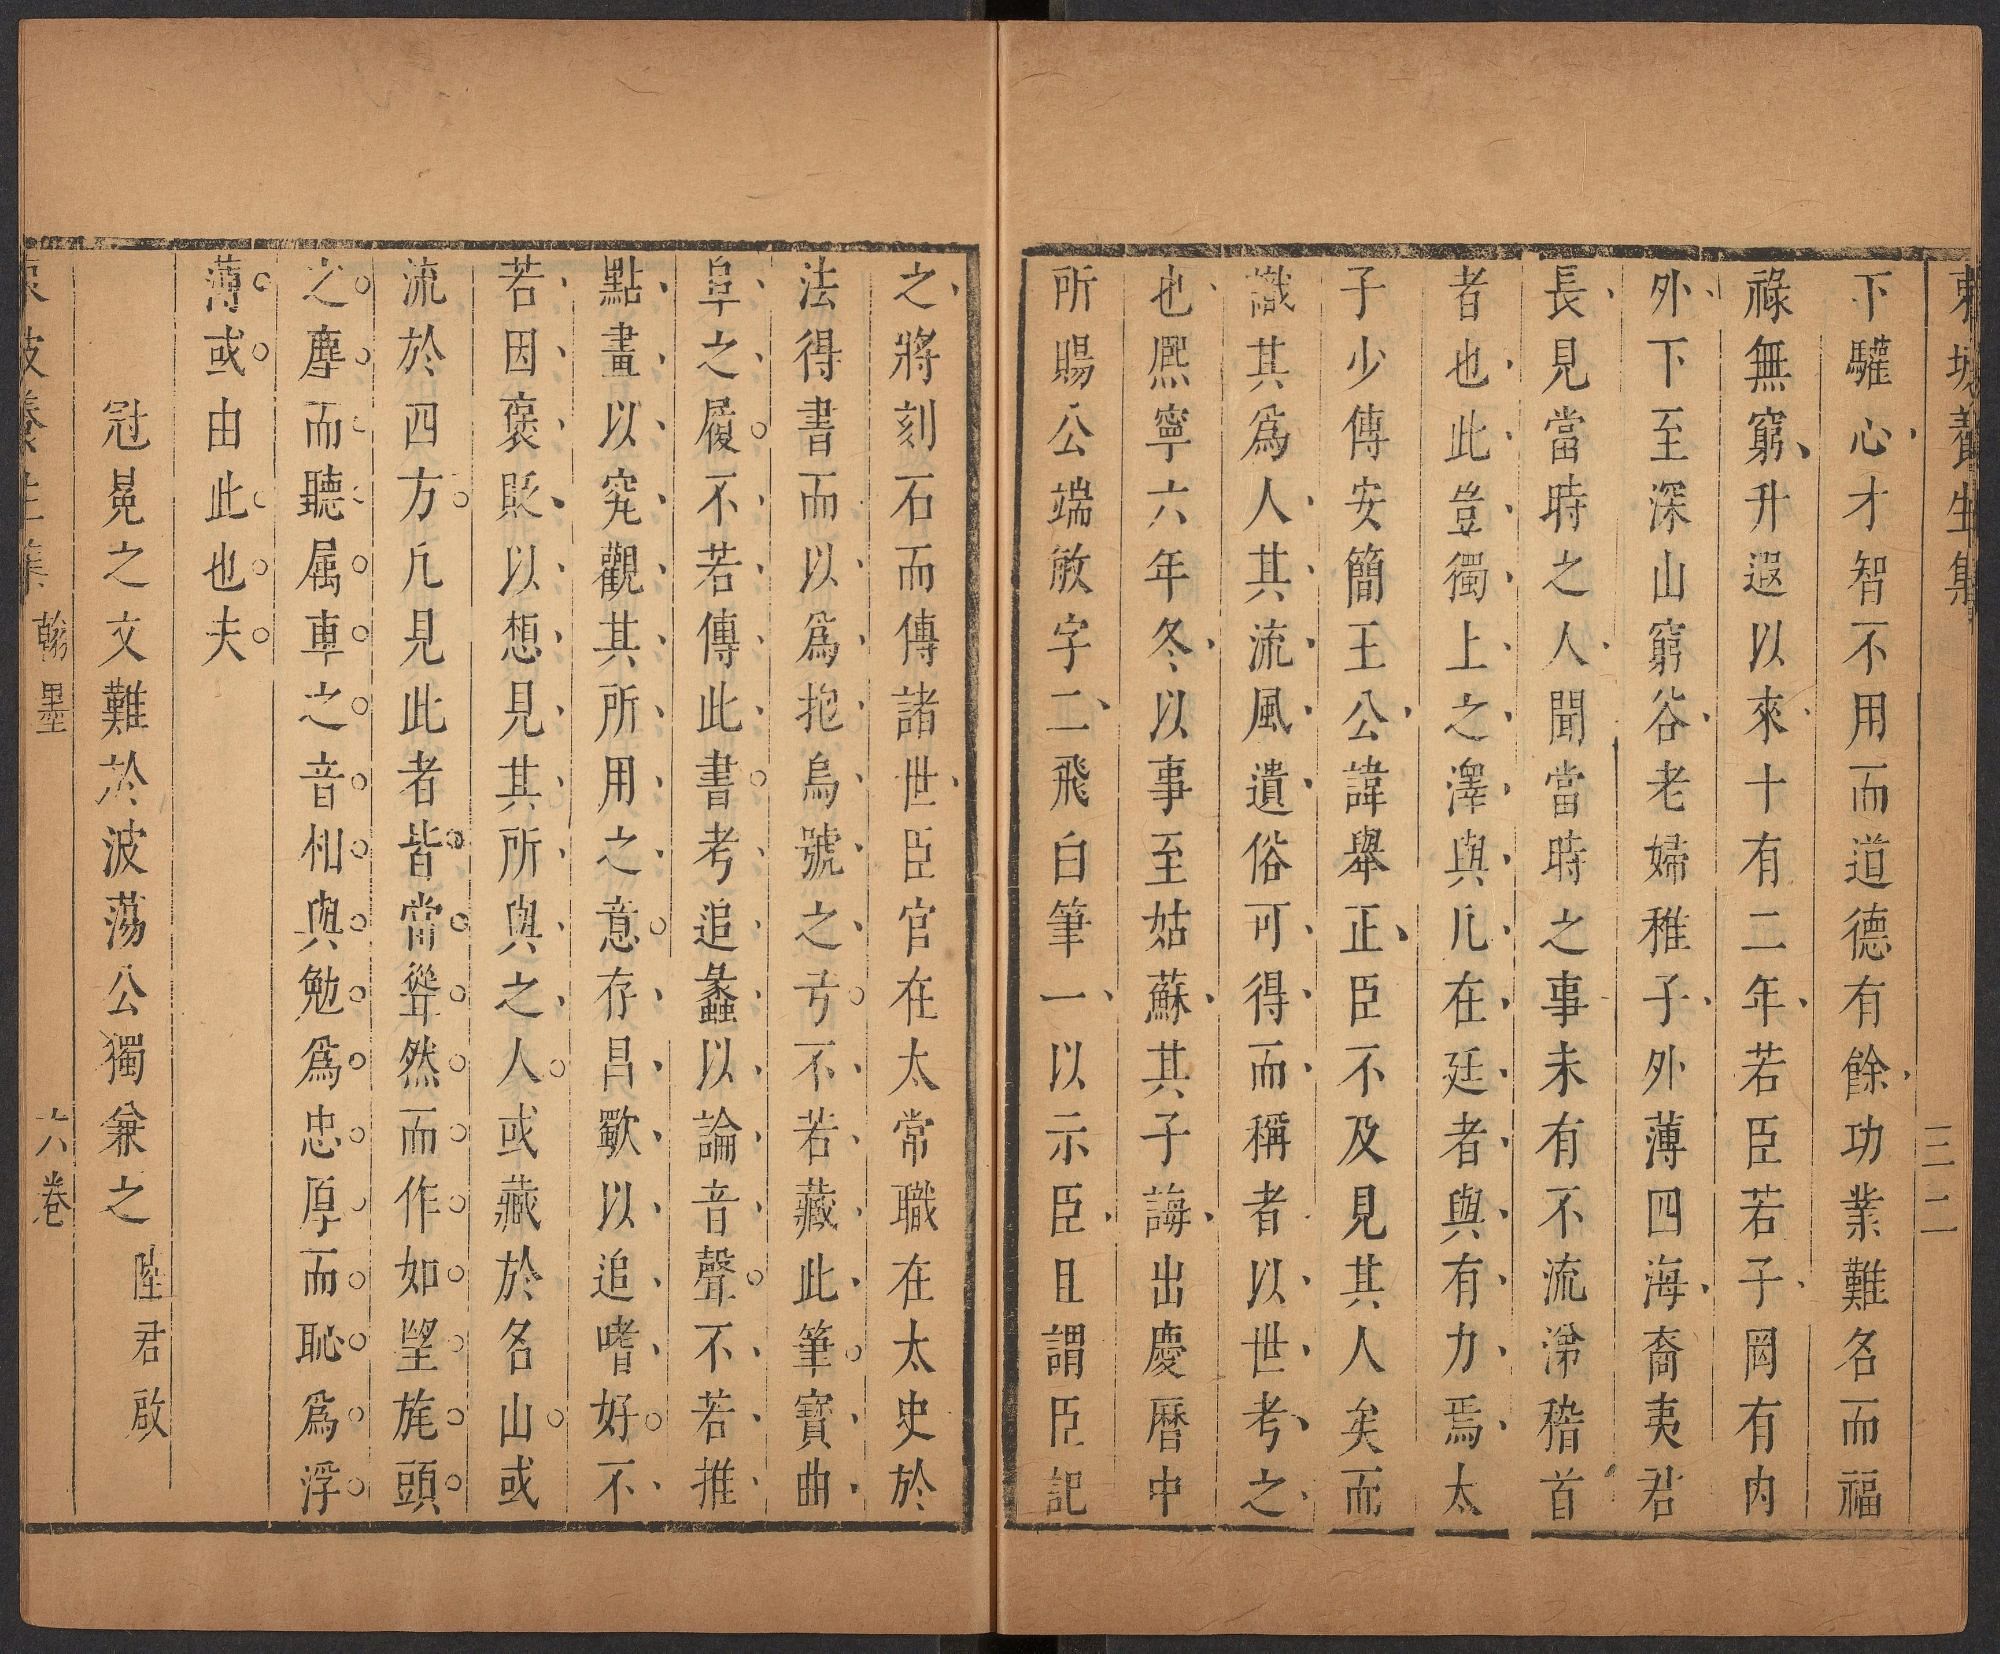 東坡養生集
三二
下驩心才智不用而道德有餘功業難名而福
祿無窮升遐以來十有二年若臣若子罔有內
外下至深山窮谷老婦稚子外薄四海裔夷君
長見當時之人聞當時之事未有不流涕稽首
者也此豈獨上之澤與凡在廷者與有力焉太
子少傅安簡王公諱舉正臣不及見其人矣而
識其爲人其流風遺俗可得而稱者以世考之
也熈寧六年冬以事至姑蘇其子誨出慶曆中
所賜公端敏字二飛白筆一以示臣且謂臣記
之將刻石而傳諸世臣官在太常職在太史於
法得書而以爲抱烏號之弓不若藏此筆寶曲
阜之履不若傳此書考追蠡以論音聲不若推
點畫以究觀其所用之意存昌歜以追嗜好不
若因褒貶以想見其所與之人或藏於名山或
流於四方凢見此者皆當聳然而作如望旄頭
之塵而聽属車之音相與勉爲忠厚而恥爲浮
薄或由此也夫
冠冕之文難於波蕩公獨兼之 陸君啟
東坡養生集 翰墨 六卷